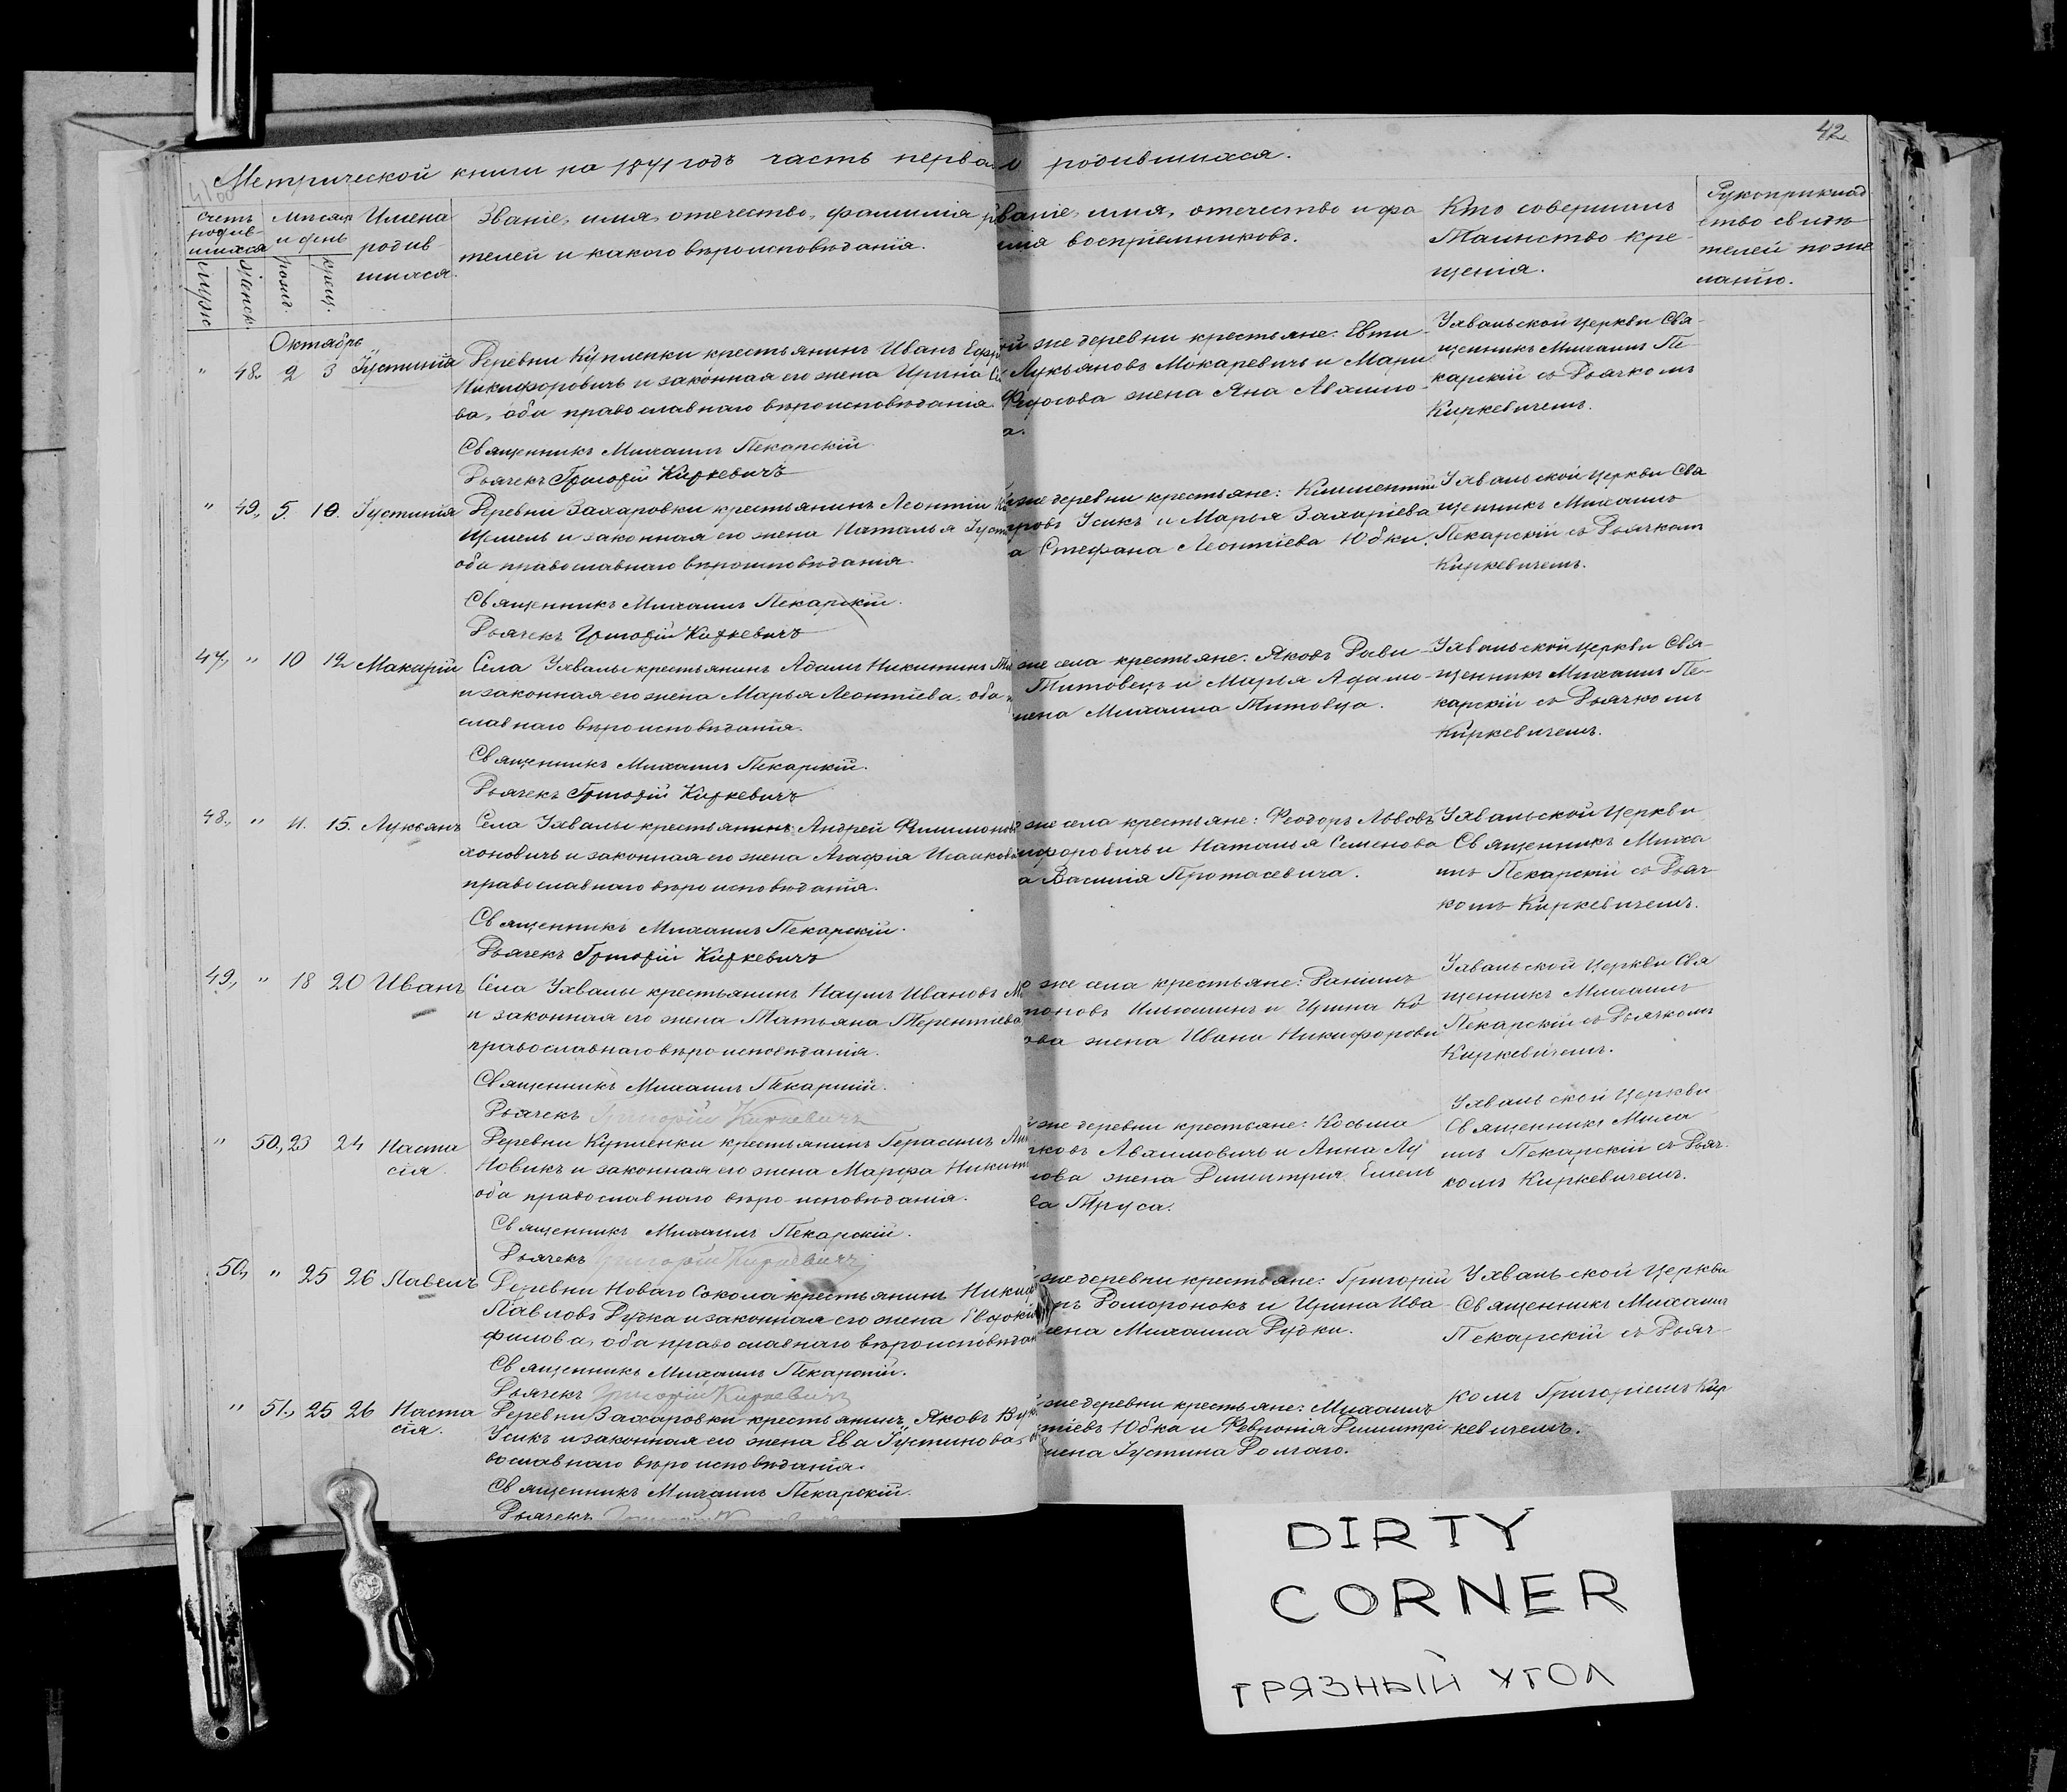 42
Метрической книги на 1871 годъ часть перва о родившихся.
Счетъ родив-шихся
Мѣсяцъ и день
Имена родив-шихся.
Званіе, имя, отечество, фамилія
телей и какого вѣроисповѣданія.
Званіе, имя, отечество и фа
милія воспріемниковъ.
Кто совершалъ
Таинство кре-
щенія.
Рукоприклад
ство свидѣ
телей по же
ланію.
муж.
женск.
рожд.
крещ.
Октябрь
" 48. 2 3 Іустинія
Деревни Купленки крестьянинъ Иванъ
Никифоровичъ и законная его жена Ирина
ва, оба православнаго вѣроисповѣданія.
Священникъ Михаилъ Пекарскій
Дьячекъ Григорій Киркевичъ
же деревни крестьяне: Евти
Лукьяновъ Мокаревичъ и Мари
жена Яна Авхимо-
а.
Ухвальской церкви Свя-
щенникъ Михаилъ Пе-
карскій съ Дьячкомъ
Киркевичемъ.
" 49. 5. 10. Іустинія
Деревни Захаровки крестьянинъ Леонтій
и законная его жена Наталья
оба православнаго вѣроисповѣданія.
Священникъ Михаилъ Пекарскій.
Дьячекъ Григорій Киркевичъ
же деревни крестьяне: Климентій
Усикъ и Марья Захаріева
а Стефана Леонтіева Юбки.
Ухвальской церкви Свя
щенникъ Михаилъ
Пекарскій съ Дьячкомъ
Киркевичемъ.
47. " 10 12 Макарій
Села Ухвалы крестьянинъ Адамъ Никитинъ
и законная его жена Марья Леонтіева, оба
славнаго вѣроисповѣданія.
Священникъ Михаилъ Пекарскій.
Дьячекъ Григорій Киркевичъ
же села крестьяне: Яковъ Дави-
Титовецъ и Марья Адамо-
жена Михаила Титовца.
Ухвальской церкви Свя-
щенникъ Михаилъ Пе-
карскій съ Дьячкомъ
Киркевичемъ.
48. " 11. 15. Лукьянъ
Села Ухвалы крестьянинъ Андрей Филимоновъ
хоновичъ и законная его жена Агафія Исаакова
православнаго вѣроисповѣданія.
Священникъ Михаилъ Пекарскій.
Дьячекъ Григорій Киркевичъ
же села крестьяне: Феодоръ Львовъ
ифоровичъ и Наталья Семенова
а Василія Протасевича.
Ухвальской церкви
Священникъ Миха
илъ Пекарскій съ Дьяч-
комъ Киркевичемъ.
49. " 18 20 Иванъ
Села Ухвалы крестьянинъ Наумъ Ивановъ
и законная его жена Татьяна Терентіева
православнаго вѣроисповѣданія.
Священникъ Михаилъ Пекарскій.
Дьячекъ Григорій Киркевичъ
же села крестьяне: Даніилъ
Ильюшинъ и Ирина Ко
ова жена Ивана Никифорови
Ухвальской церкви Свя
щенникъ Михаилъ
Пекарскій съ Дьячкомъ
Киркевичемъ.
" 50. 23 24 Наста
сія.
Деревни Купленки крестьянинъ Герасимъ
Новикъ и законная его жена Марфа Никит
оба православнаго вѣро-исповѣданія.
Священникъ Михаилъ Пекарскій.
Дьячекъ Григорій Киркевичъ
же деревни крестьяне: Косьма
ковъ Авхимовичъ и Анна Лу
нова жена Димитрія Емель
ва Труса.
Ухвальской церкви
Священникъ Миха
илъ Пекарскій съ Дьяч-
комъ Киркевичемъ.
50. " 25 26 Павелъ
Деревни Новаго Сокола крестьянинъ
Павловъ Дудка и законная его жена Евдокія
филова, оба православнаго вѣроисповѣдан
Священникъ Михаилъ Пекарскій.
Дьячекъ Григорій Киркевичъ
же деревни крестьяне: Григорій
Доморонокъ и Ирина Ива
жена Михаила Дудки.
Ухвальской церкви
Священникъ Михаилъ
Пекарскій съ Дьяч-
" 51. 25 26 Наста
сія.
Деревни Захаровки крестьянинъ Яковъ
Усикъ и законная его жена Ева Іустинова,
вославнаго вѣроисповѣданія.
Священникъ Михаилъ Пекарскій.
Дьячекъ
же деревни крестьяне: Михаилъ
тіевъ Юбка и Февронія Димитрі
жена Іустина Долгаго.
комъ Григоріемъ Кир
кевичемъ.
DIRTY
CORNER
ГРЯЗНЫЙ УГОЛ